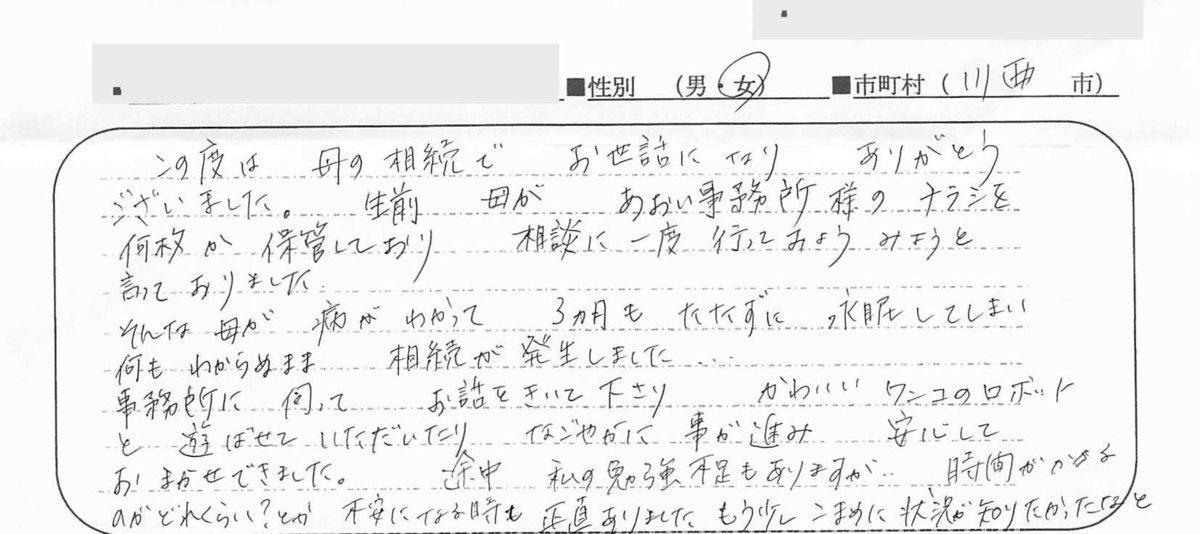 ■性別 （男・女） ■市町村（川西 市）
この度は 母の相続で お世話になり ありがとう
ございました。 生前 母が あおい事務所様のチラシを
何枚か保管しており 相談に一度行ってみよう みようと
言っておりました
そんな母が 病がわかって 3ヵ月もたたずに 永眠してしまい
何もわからぬまま 相続が発生しました....
事務所に伺って お話をきいて下さり かわいいワンコのロボット
と遊ばせていただいたり なごやかに事が進み 安心して
おまかせできました。 途中 私の勉強不足もありますが.. 時間がかかる
のがどれくらい?とか 不安になる時も正直ありました もう少しこまめに状況が知りたかったなと